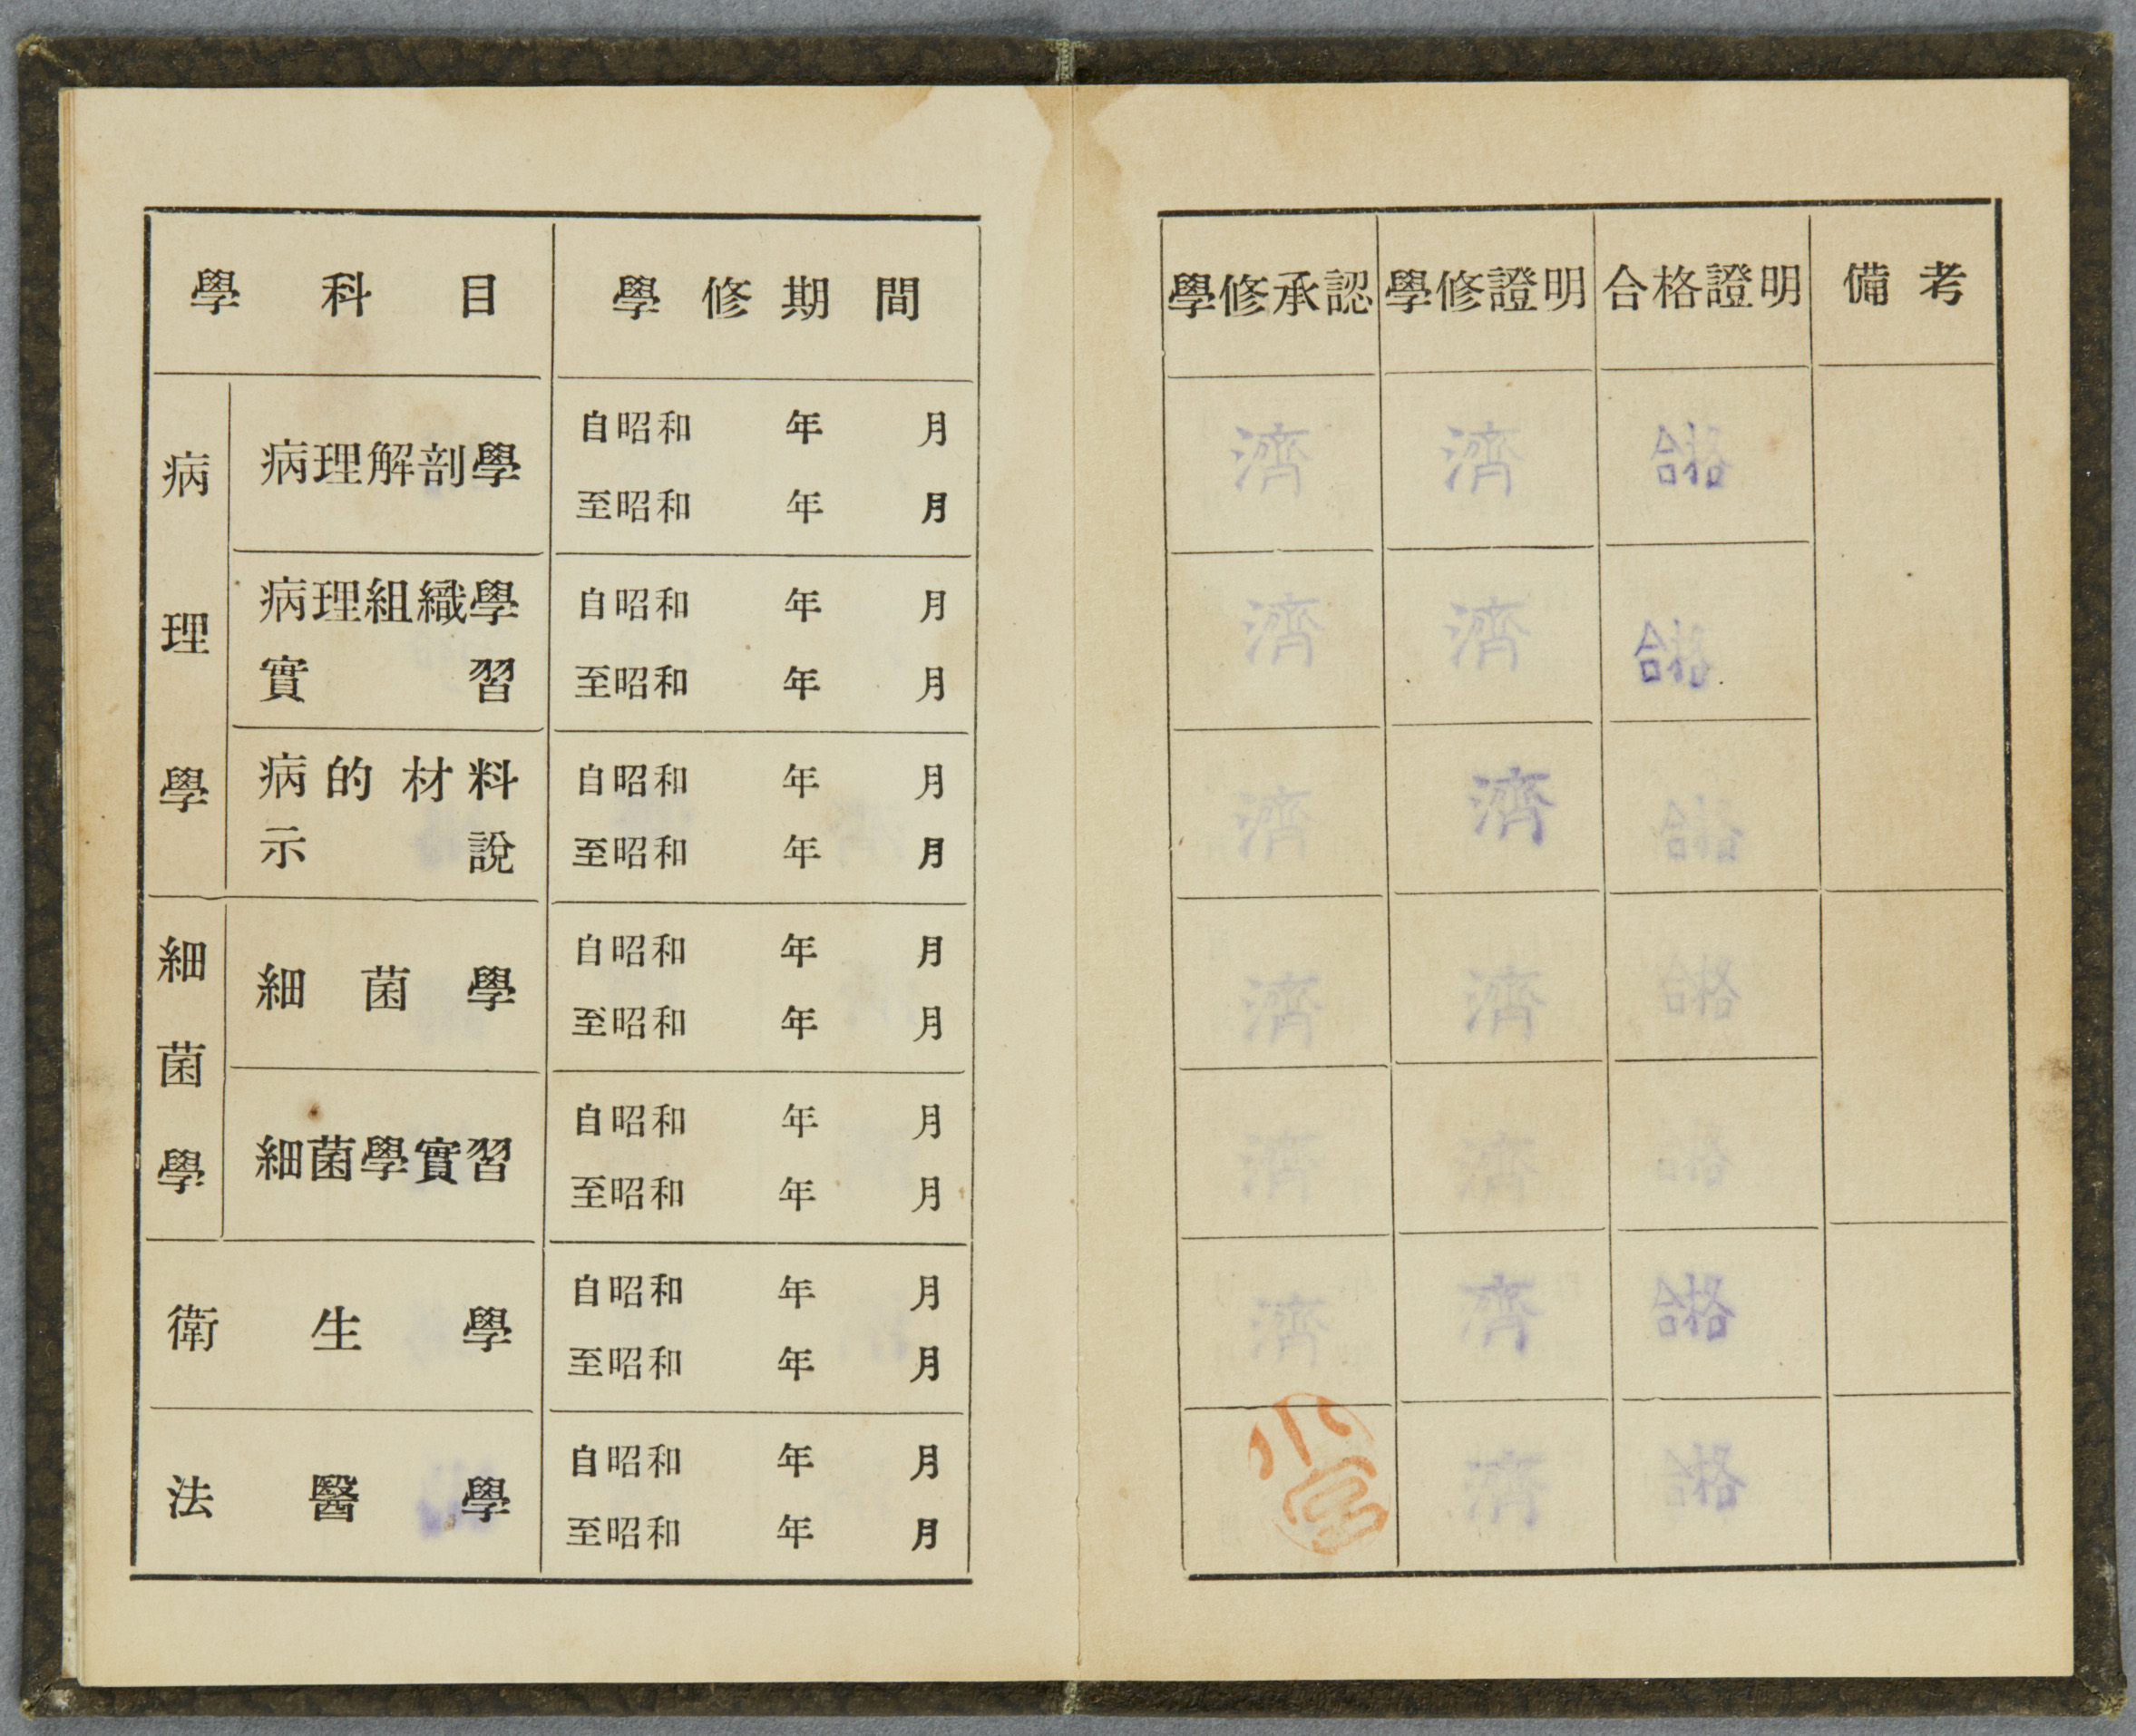 學科目 學修期間 學修承認 學修證明 合格證明 備考
病理學
病理解剖學 自昭和 年 月 濟 濟 合格
至昭和 年 月
病理組織學 自昭和 年 月 濟 濟 合格
實習 至昭和 年 月
病的材料 自昭和 年 月 濟 濟 合格
示說 至昭和 年 月
細菌學
細菌學 自昭和 年 月 濟 濟 合格
至昭和 年 月
細菌學實習 自昭和 年 月 濟 濟 合格
至昭和 年 月
衛生學 自昭和 年 月 濟 濟 合格
至昭和 年 月
法醫學 自昭和 年 月 小宮 濟 合格
至昭和 年 月